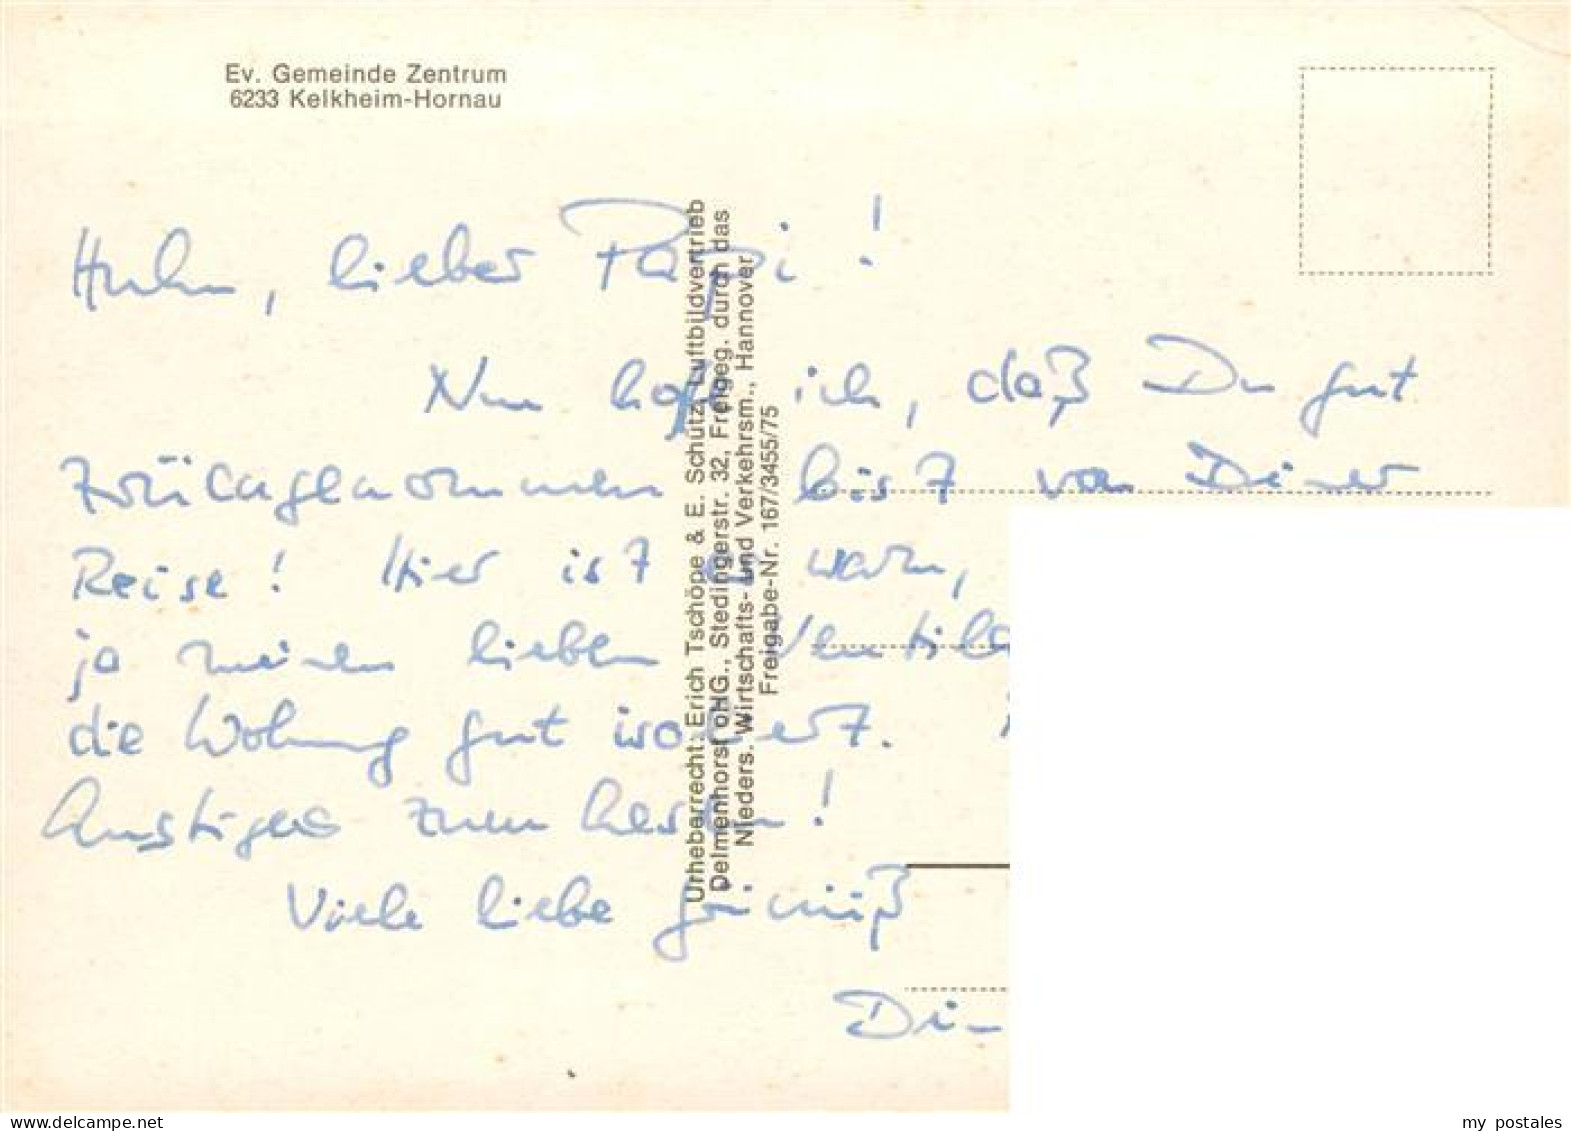 Ev. Gemeinde Zentrum
6233 Kelkheim-Hornau
Huhu, lieber Papi!
Nun hoffe ich, daß Du gut
bist von Deiner
Reise! Hier ist es warm,
ja meinen lieben
die Wohnung gut isoliert.
zum besten!
Viele liebe
Urheberrecht: Erich Tschöpe & E. Schütz, Luftbildvertrieb
Delmenhorst oHG., Stedingerstr. 32, Freigeg. durch das
Nieders. Wirtschafts- und Verkehrsm., Hannover
Freigabe-Nr. 167/3455/75
delcampe.net
my_postales